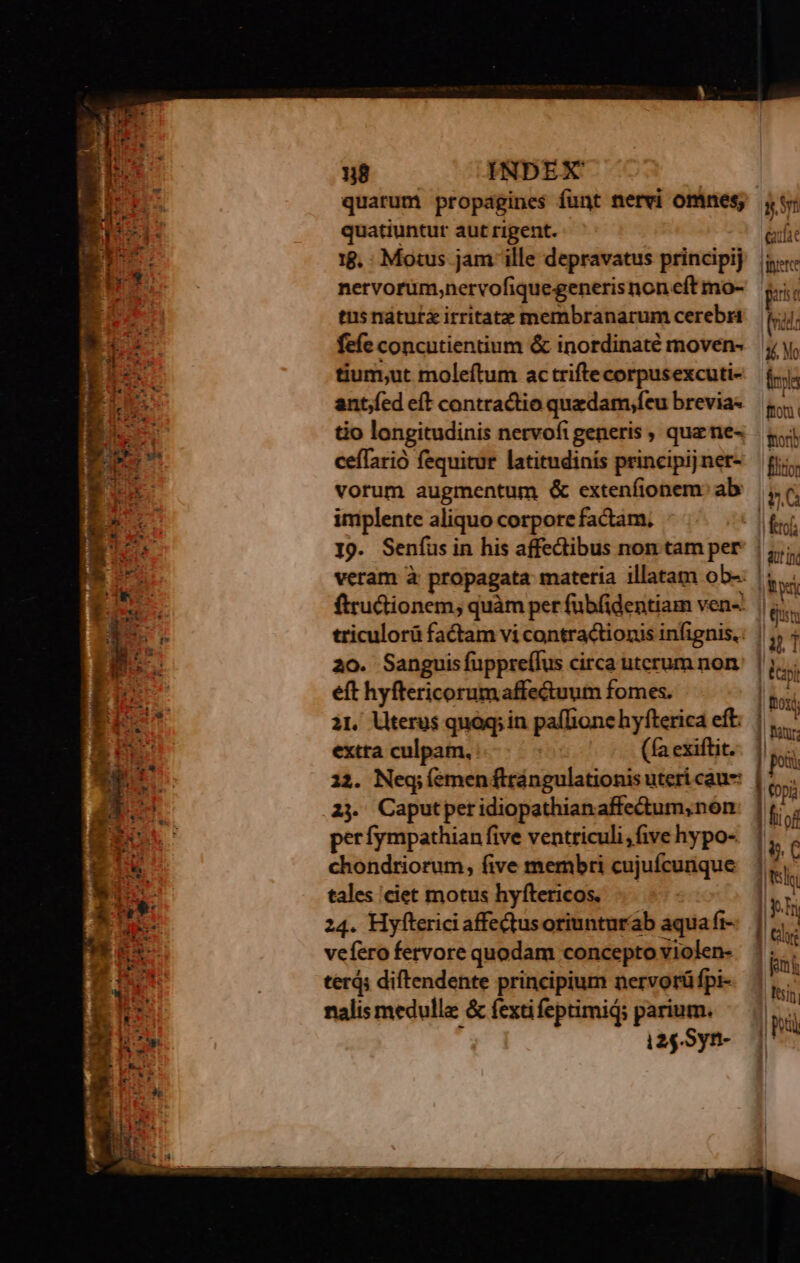 118 INDEX
quarum propagines ſunt nervi omnes,
quatiuntur aut rigent.
18. Motus jam ille depravatus principij
nervorum, nervoſique generis non eſt mo-
tus naturæ irritatæ membranarum cerebri
ſeſe concutientium & inordinatè moven-
tium, ut moleſtum ac triſte corpus excuti-
ant, ſed eſt contractio quædam, ſeu brevia-
tio longitudinis nervoſi generis, quæ ne-
ceſſariò ſequitur latitudinis principij ner-
vorum augmentum & extenſionem ab
implente aliquo corpore factam.
19. Senſus in his affectibus non tam per
veram à propagata materia illatam ob-
ſtructionem, quàm per ſubſidentiam ven-
triculorũ factam vi contractionis inſignis.
20. Sanguis ſuppreſſus circa uterum non
eſt hyſtericorum affectuum fomes.
21. Uterus quoq; in paſſione hyſterica eſt
extra culpam. (ſa exiſtit.
22. Neq; ſemen ſtrangulationis uteri cau-
23. Caput per idiopathian affectum, non
per ſympathian ſive ventriculi, ſive hypo-
chondriorum, ſive membri cujuſcunque
tales ciet motus hyſtericos.
24. Hyſterici affectus oriuntur ab aqua ſi-
ve ſero fervore quodam concepto violen-
terq; diſtendente principium nervorũ ſpi-
nalis medullæ & ſexti ſeptimiq; parium.
25. Syn-